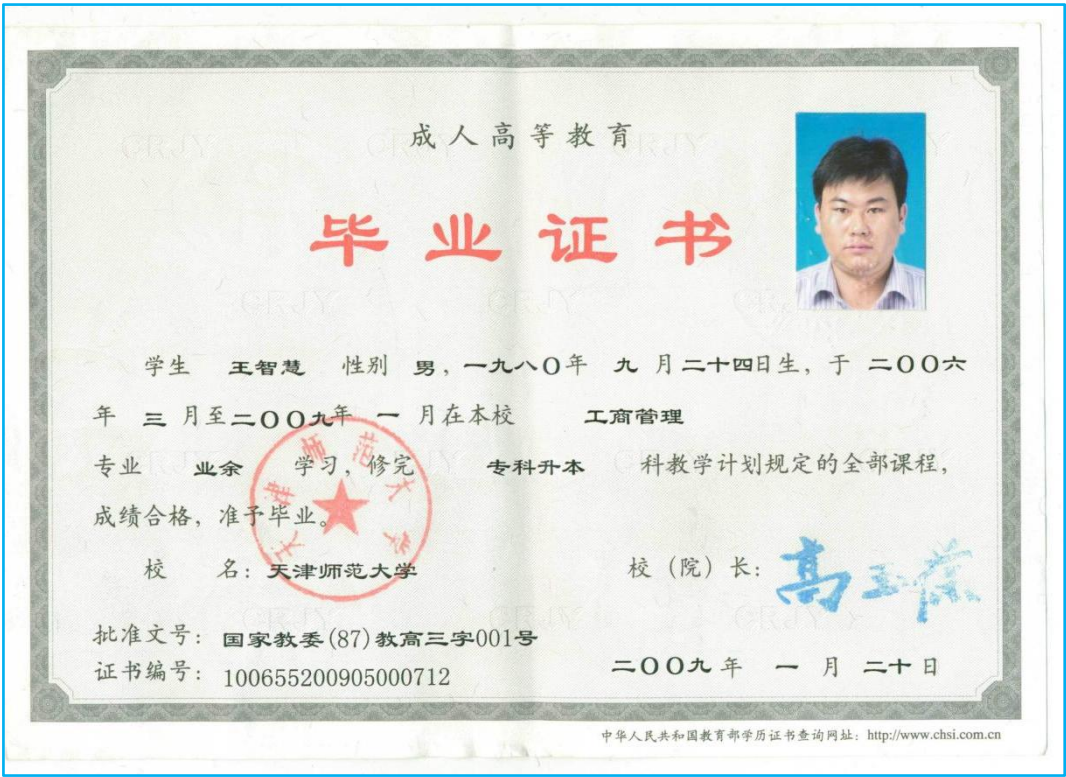 成人高等教育
毕业证书
学生 王智慧 性别 男，一九八〇年 九 月二十四日生，于 二〇〇六
年 三 月至二〇〇九年 一 月在本校 工商管理
专业 业余 学习，修完 专科升本 科教学计划规定的全部课程，
成绩合格，准予毕业。
天津师范大学
校 名：天津师范大学 校（院）长：高玉葆
批准文号：国家教委(87)教高三字001号
证书编号：100655200905000712 二〇〇九 年 一 月 二十 日
中华人民共和国教育部学历证书查询网址：http://www.chsi.com.cn
CRJY